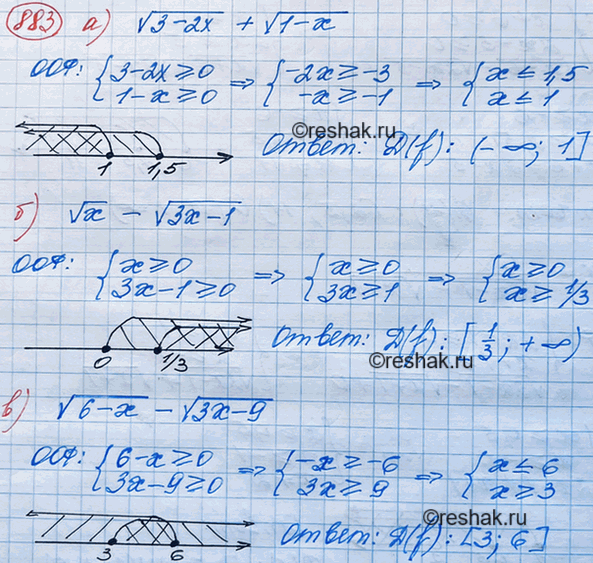 883 а) √3-2x + √1-x
ООФ: { 3-2x ≥ 0 => { -2x ≥ -3 => { x ≤ 1,5
1-x ≥ 0 -x ≥ -1 x ≤ 1
©reshak.ru
1 1,5 Ответ: D(f): (-∞; 1]
б) √x - √3x-1
ООФ: { x ≥ 0 => { x ≥ 0 => { x ≥ 0
3x-1 ≥ 0 3x ≥ 1 x ≥ 1/3
0 1/3 Ответ: D(f): [1/3; +∞)
©reshak.ru
в) √6-x - √3x-9
ООФ: { 6-x ≥ 0 => { -x ≥ -6 => { x ≤ 6
3x-9 ≥ 0 3x ≥ 9 x ≥ 3
©reshak.ru
3 6 Ответ: D(f): [3; 6]